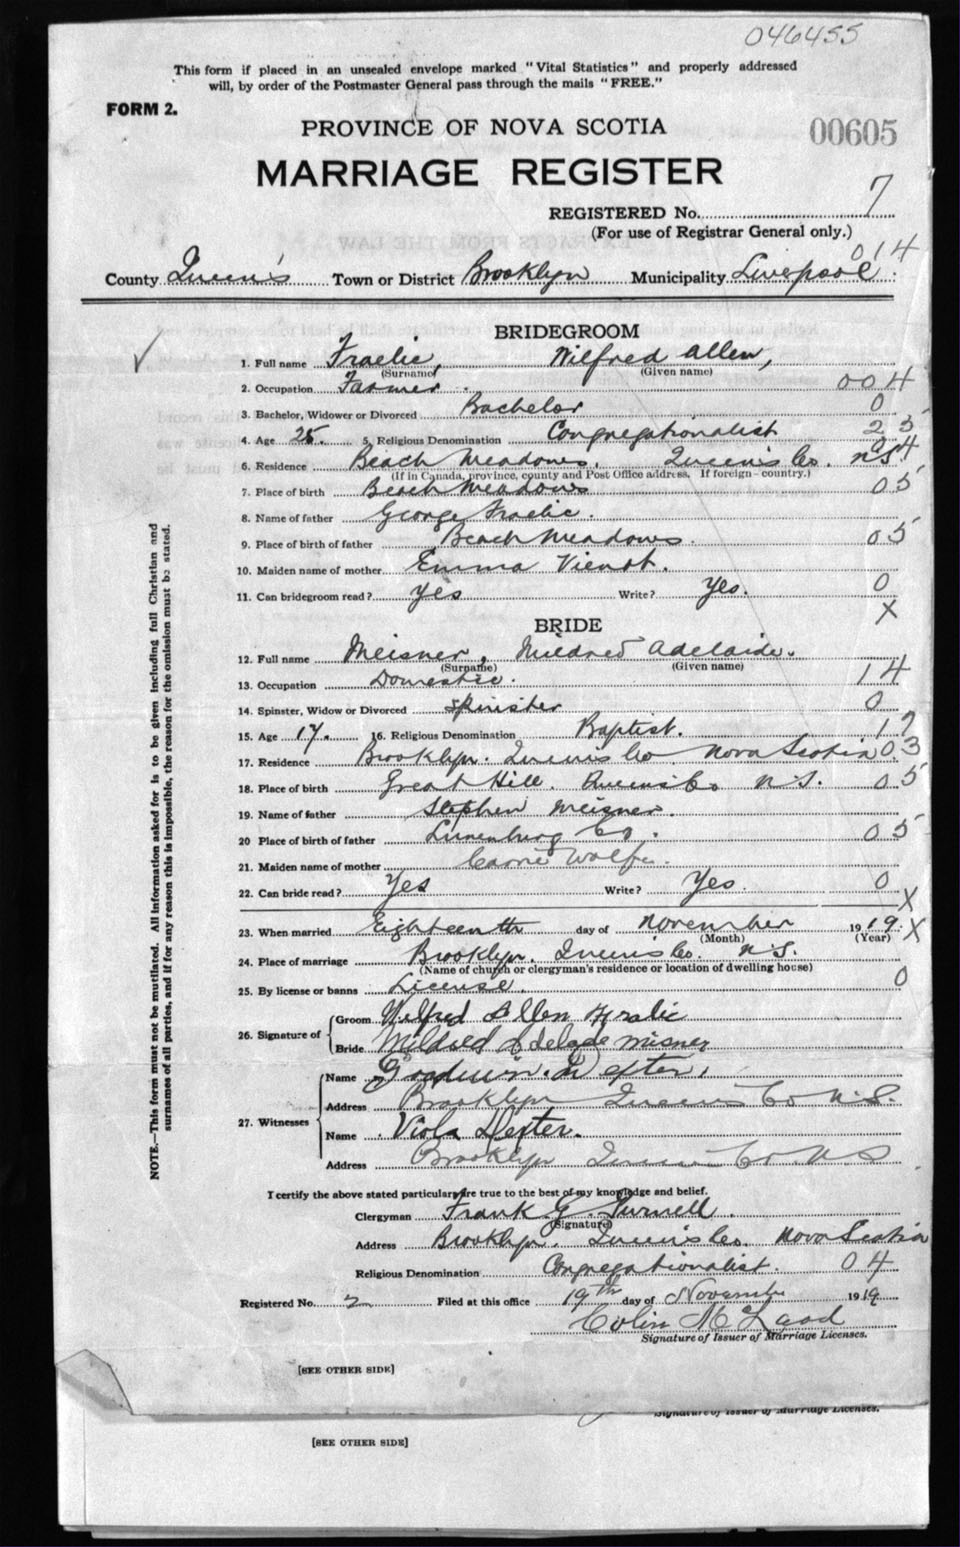 046455
This form if placed in an unsealed envelope marked "Vital Statistics" and properly addressed
will, by order of the Postmaster General pass through the mails "FREE."
FORM 2.
PROVINCE OF NOVA SCOTIA
00605
MARRIAGE REGISTER
REGISTERED No. 7
(For use of Registrar General only.)
014
County Queen's Town or District Brooklyn Municipality Liverpool
BRIDEGROOM
1. Full name Fraelic, Wilfred Allen,
(Surname) (Given name)
2. Occupation Farmer. 004
3. Bachelor, Widower or Divorced Bachelor 0
4. Age 25. 5. Religious Denomination Congregationalist 25
6. Residence Beach Meadows, Queens Co. N.S. 04
(If in Canada, province, county and Post Office address. If foreign - country.)
7. Place of birth Beach Meadows 05
8. Name of father George Fraelic.
9. Place of birth of father Beach Meadows. 05
10. Maiden name of mother Emma Vienot.
11. Can bridegroom read? Yes Write? Yes. 0
X
BRIDE
12. Full name Meisner, Mildred Adelaide.
(Surname) (Given name)
13. Occupation Domestic. 14
14. Spinster, Widow or Divorced Spinster 0
15. Age 17. 16. Religious Denomination Baptist. 17
17. Residence Brooklyn. Queens Co Nova Scotia 03
18. Place of birth Great Hill. Queens Co N.S. 05
19. Name of father Stephen Meisner.
20 Place of birth of father Lunenburg Co. 05
21. Maiden name of mother Carrie Wolfe.
22. Can bride read? Yes Write? Yes. 0
X
23. When married Eighteenth day of November 1919. X
(Month) (Year)
24. Place of marriage Brooklyn. Queens Co. N.S.
(Name of church or clergyman's residence or location of dwelling house)
25. By license or banns License. 0
26. Signature of Groom Wilfred Allen Fralic
Bride Mildred Adelade Misner
27. Witnesses Name Goodwin Dexter,
Address Brooklyn Queens Co N.S.
Name Viola Dexter.
Address Brooklyn Queens Co. N.S
I certify the above stated particulars are true to the best of my knowledge and belief.
Clergyman Frank G. Purnell.
(Signature)
Address Brooklyn. Queens Co. Nova Scotia
Religious Denomination Congregationalist. 04
Registered No. 2 Filed at this office 19th day of November 1919
Colin M
Signature of Issuer of Marriage Licenses.
[SEE OTHER SIDE]
Signature of Issuer of Marriage Licenses.
[SEE OTHER SIDE]
NOTE.—This form must not be mutilated. All information asked for is to be given including full Christian and
surnames of all parties, and if for any reason this is impossible, the reason for the omission must be stated.